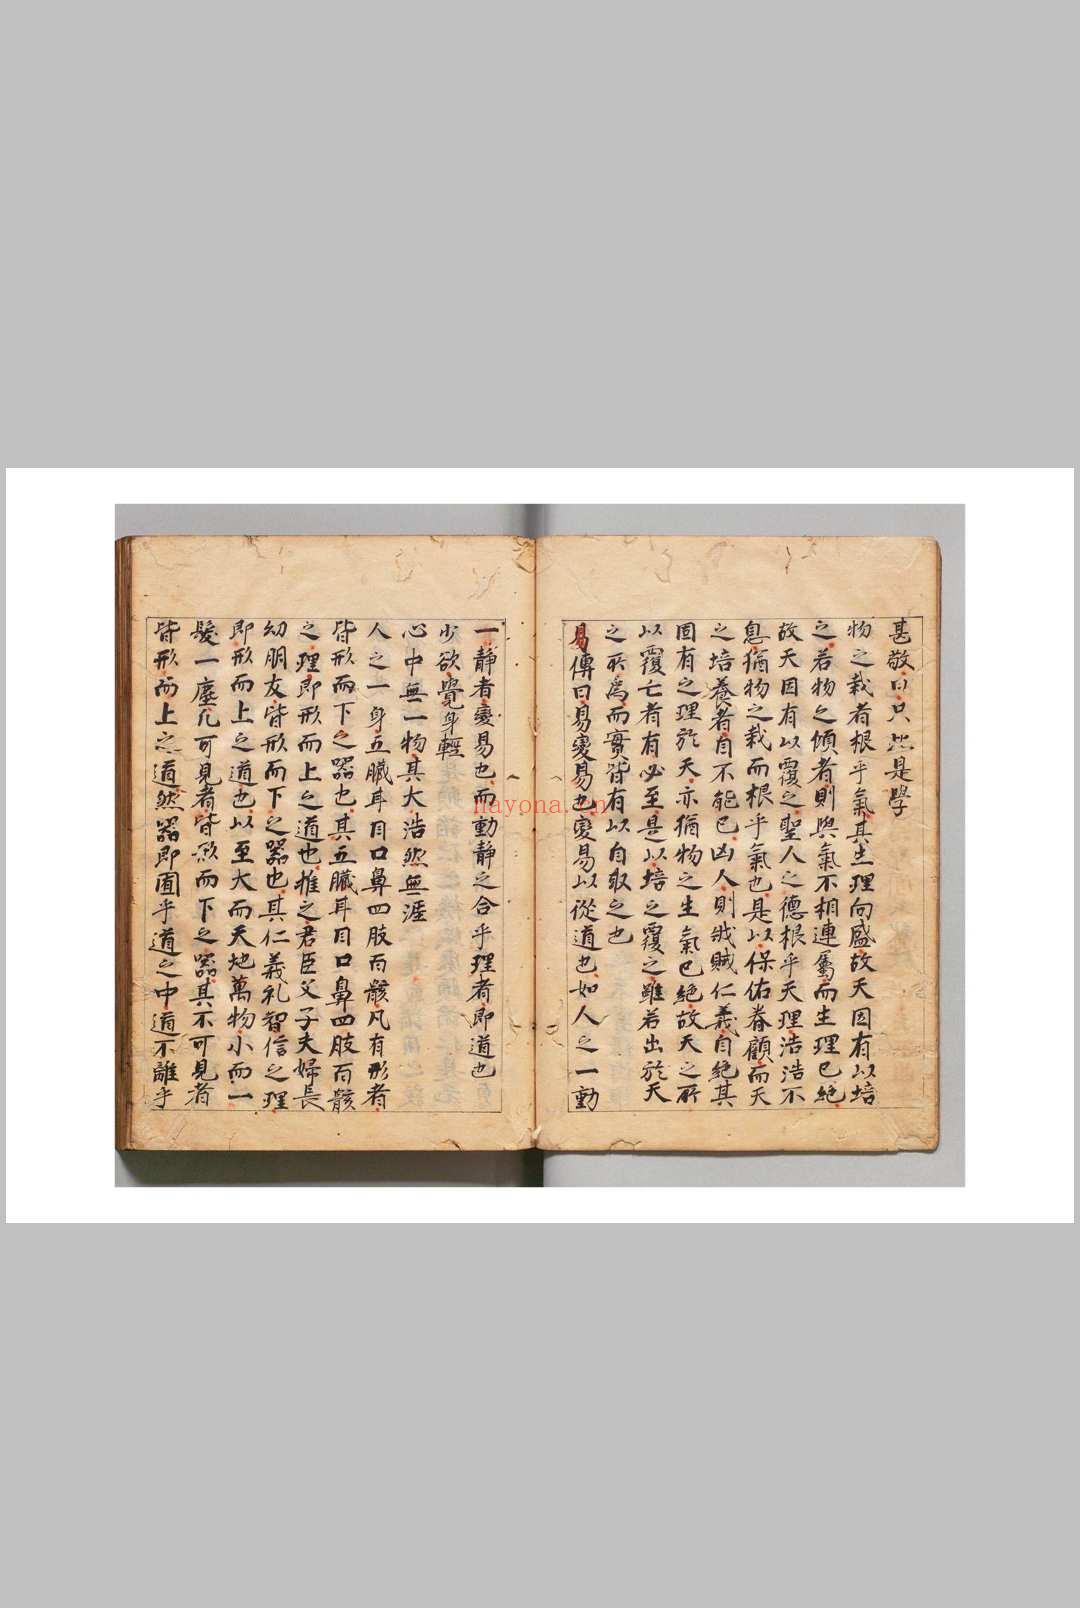 甚敬曰只此是學
物之栽者根乎氣其生理向盛故天因有以培
之若物之傾者則與氣不相連屬而生理已絕
故天因有以覆之聖人之德根乎天理浩浩不
息猶物之栽而根乎氣也是以保佑眷顧而天
之培養者自不能已凶人則戕賊仁義自絕其
固有之理於天亦猶物之生氣已絕故天之所
以覆亡者有必至是以培之覆之雖若出於天
之所為而實皆有以自取之也
易傳曰易變易也變易以從道也如人之一動
一靜者變易也而動靜之合乎理者即道也
少欲覺身輕
心中無一物其大浩然無涯
人之一身五臟耳目口鼻四肢百骸凡有形者
皆形而下之器也其五臟耳目口鼻四肢百骸
之理即形而上之道也推之君臣父子夫婦長
幼朋友皆形而下之器也其仁義礼智信之理
即形而上之道也以至大而天地萬物小而一
髮一塵凡可見者皆形而下之器其不可見者
皆形而上之道然器即囿乎道之中道不離乎
nayona.cn